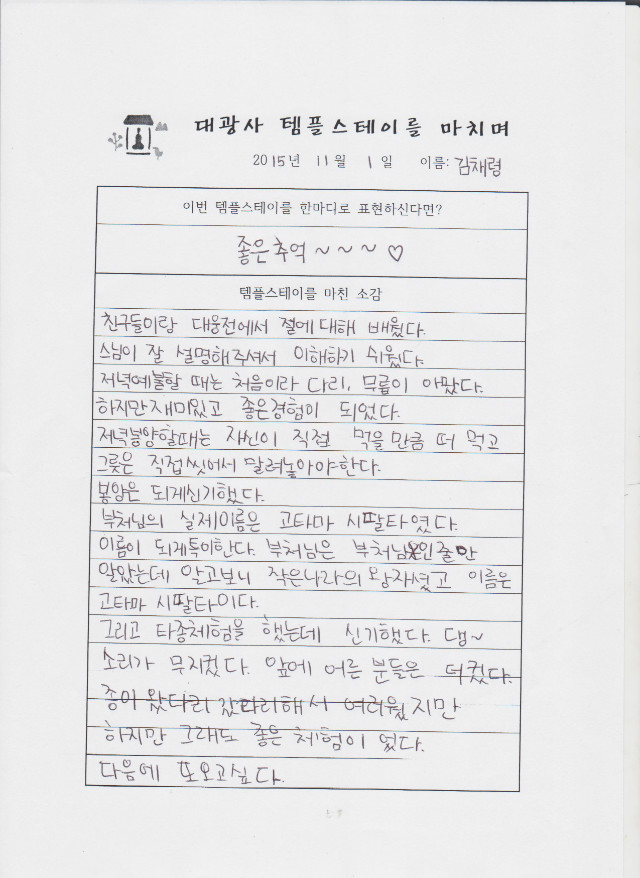 대광사 템플스테이를 마치며
2015년 11월 1일 이름: 김채령
이번 템플스테이를 한마디로 표현하신다면?
좋은추억~~~♡
템플스테이를 마친 소감
친구들이랑 대웅전에서 절에대해 배웠다.
스님이 잘 설명해주셔서 이해하기 쉬웠다.
저녁예불할 때는 처음이라 다리, 무릎이 아팠다.
하지만재미있고 좋은경험이 되었다.
저녁봉양할때는 자신이 직접 먹을만큼 떠 먹고
그릇은 직접씻어서 말려놓아야한다.
봉양은 되게신기했다.
부처님의 실제이름은 고타마 시팔타였다.
이름이 되게특이한다. 부처님은 부처님인줄만
알았는데 알고보니 작은나라의 왕자셨고 이름은
고타마 시팔타이다.
그리고 타종체험을 했는데 신기했다. 댐~
소리가 무지컸다. 앞에 어른 분들은 더컸다.
종이 왔다리 갔다리해서 어려웠지만
하지만 그래도 좋은 체험이 었다.
다음에 또오고싶다.